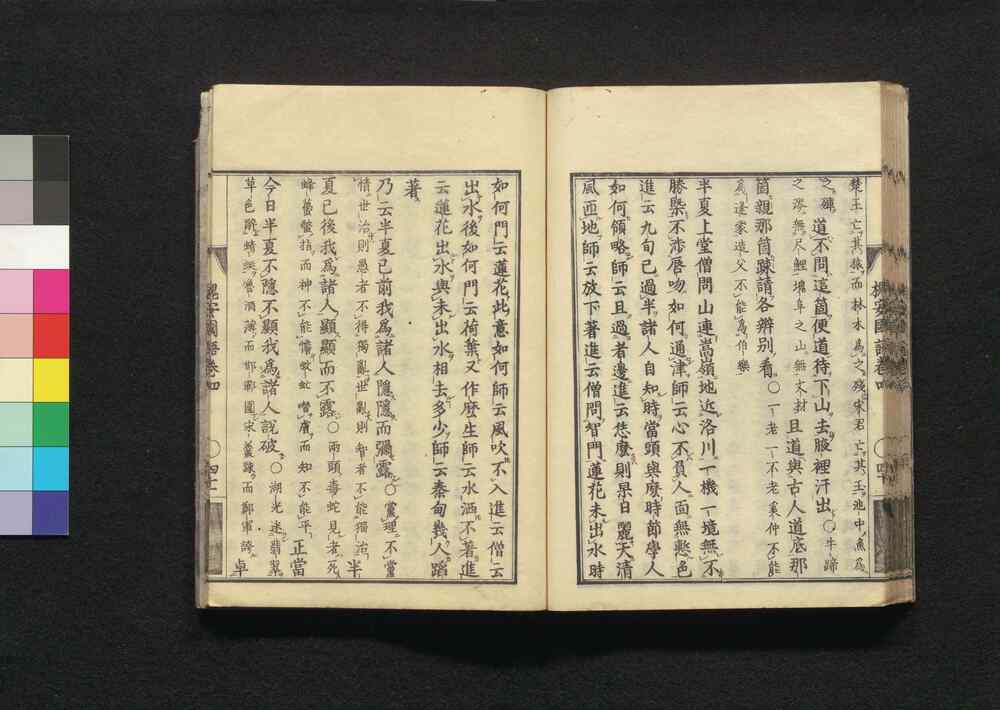 楚王亡其猿而林木爲之殘宋君亡其玉池中魚爲
之殫道不問這箇便道待下山去脥裡汗出〇牛蹄
之涔無尺鯉塊阜之山無丈材且道與古人道底那
箇親那箇踈請各辨别看〇一老一不老奚仲不能
爲逢家造父不能爲伯樂
半夏上堂僧問山連嵩嶺地近洛川一機一境無不
勝槩不渉唇吻如何通津師云心不負人面無慙色
進云九旬已過半諸人自知時當頭與麼時節學人
如何領略師云且過者邊進云恁麼則杲日麗天清
風匝地師云放下著進云僧問智門蓮花未出水時
如何門云蓮花此意如何師云風吹不入進云僧云
出水後如何門云荷葉又作麼生師云水洒不著進
云蓮花出水與未出水相去多少師云秦甸幾人蹈
著
乃云半夏已前我爲諸人隱隱而彌露〇黨理不黨
情世治則愚者不得獨亂世亂則智者不能獨治半
夏已後我爲諸人顯顯而不露〇兩頭毒蛇見者死
蜂蠆螫指而神不能憺蚊虻噆膚而知不能平正當
今日半夏不隱不顯我爲諸人說破〇湖光迷翡翠
草色醉蜻蜓魯酒薄而邯鄲圍宋羹踈而鄭軍誇卓
槐安國語卷四
〇四十
槐安國語卷四
〇四十